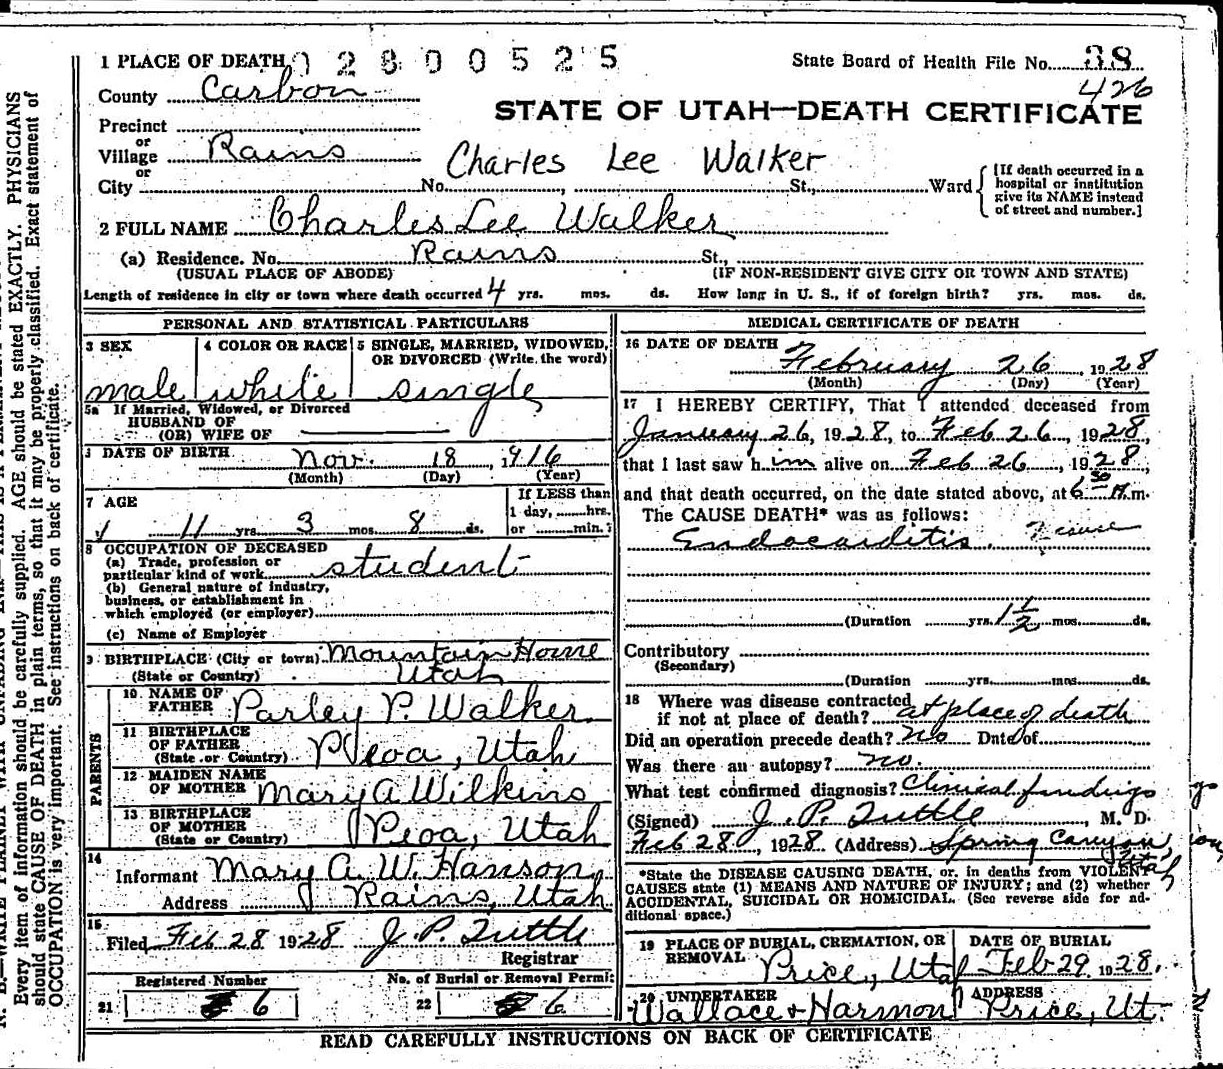 1 PLACE OF DEATH 02800525 State Board of Health File No. 38
County Carbon 426
STATE OF UTAH—DEATH CERTIFICATE
Precinct
or
Village Rains
or
Charles Lee Walker
City No. , St., Ward
[If death occurred in a
hospital or institution
give its NAME instead
of street and number.]
2 FULL NAME Charles Lee Walker
(a) Residence. No. Rains St.,
(USUAL PLACE OF ABODE) (IF NON-RESIDENT GIVE CITY OR TOWN AND STATE)
Length of residence in city or town where death occurred 4 yrs. mos. ds. How long in U. S., if of foreign birth? yrs. mos. ds.
PERSONAL AND STATISTICAL PARTICULARS
3 SEX 4 COLOR OR RACE 5 SINGLE, MARRIED, WIDOWED,
OR DIVORCED (Write the word)
male white single
5a If Married, Widowed, or Divorced
HUSBAND OF
(OR) WIFE OF
DATE OF BIRTH Nov. 18, 1916
(Month) (Day) (Year)
7 AGE If LESS than
1 day, hrs.
11 yrs. 3 mos. 8 ds. or min.?
8 OCCUPATION OF DECEASED
(a) Trade, profession or
particular kind of work student
(b) General nature of industry,
business, or establishment in
which employed (or employer)
(c) Name of Employer
9 BIRTHPLACE (City or town) Mountain Home
(State or Country) Utah
PARENTS
10 NAME OF
FATHER Parley P. Walker
11 BIRTHPLACE
OF FATHER
(State or Country) Peoa, Utah
12 MAIDEN NAME
OF MOTHER Mary A Wilkins
13 BIRTHPLACE
OF MOTHER
(State or Country) Peoa, Utah
14
Informant Mary A. W. Hanson
Address Rains, Utah
15
Filed Feb 28 1928 J. P. Tuttle
Registrar
Registered Number No. of Burial or Removal Permit
21 6 22 6
MEDICAL CERTIFICATE OF DEATH
16 DATE OF DEATH
February 26, 1928
(Month) (Day) (Year)
17 I HEREBY CERTIFY, That I attended deceased from
January 26, 1928, to Feb 26, 1928,
that I last saw him alive on Feb 26, 1928,
and that death occurred, on the date stated above, at 6 30 A.m.
The CAUSE DEATH* was as follows:
Endocarditis.
(Duration yrs. 1 1/2 mos. ds.
Contributory
(Secondary)
(Duration yrs. mos. ds.
18 Where was disease contracted
if not at place of death? at place of death
Did an operation precede death? no Date of
Was there an autopsy? no.
What test confirmed diagnosis? Clinical findings
(Signed) J. P. Tuttle, M. D.
Feb 28, 1928 (Address) Spring Canyon,
Utah
*State the DISEASE CAUSING DEATH, or, in deaths from VIOLENT
CAUSES state (1) MEANS AND NATURE OF INJURY; and (2) whether
ACCIDENTAL, SUICIDAL OR HOMICIDAL. (See reverse side for ad-
ditional space.)
19 PLACE OF BURIAL, CREMATION, OR
REMOVAL Price, Utah
DATE OF BURIAL
Feb 29 1928.
20 UNDERTAKER
Wallace & Harmon
ADDRESS
Price, Ut.
READ CAREFULLY INSTRUCTIONS ON BACK OF CERTIFICATE
Every item of information should be carefully supplied. AGE should be stated EXACTLY. PHYSICIANS
should state CAUSE OF DEATH in plain terms, so that it may be properly classified. Exact statement of
OCCUPATION is very important. See instructions on back of certificate.